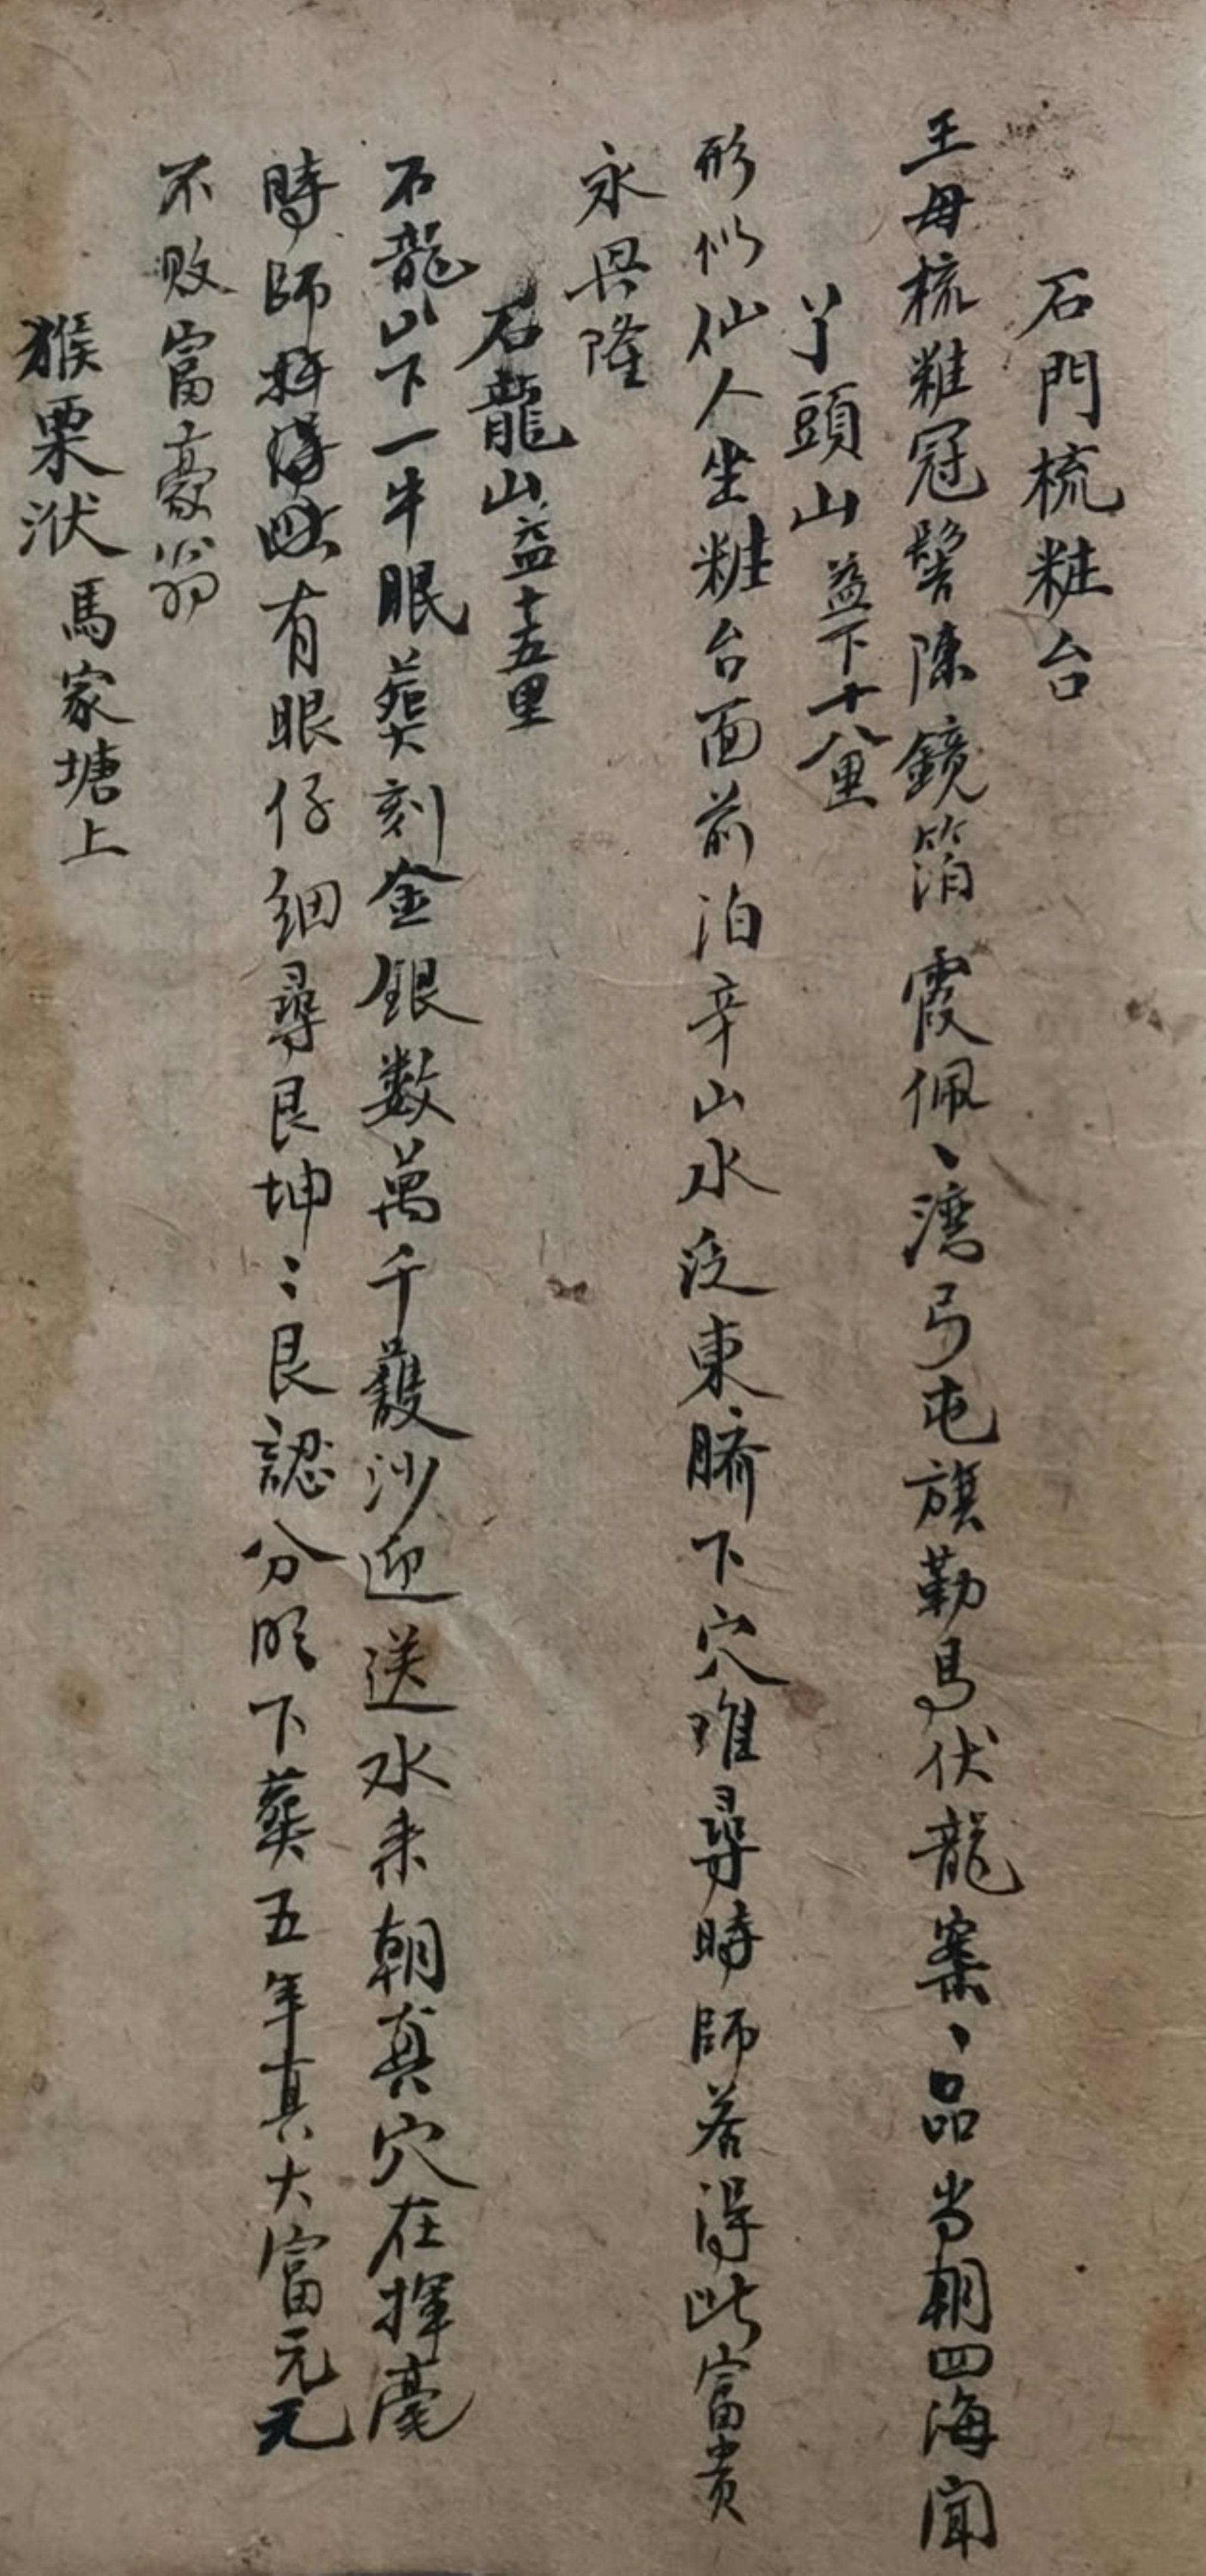 石門梳粧台
王母梳粧冠髻陳鏡箔霞佩、湾弓屯旗勒馬伏龍案、品当朝四海闻
丫頭山益下十八里
形似仙人坐粧台面前泊辛山水泛東臍下穴难尋時師若得此富貴
永興隆
石龍山益十五里
石龍山下一牛眠葬刻金銀数萬千護沙迎送水来朝真穴在揮毫
時師有眼仔細尋艮坤〻艮認分明下葬五年真大富元元
不败富豪翁
猴栗洑馬家塘上